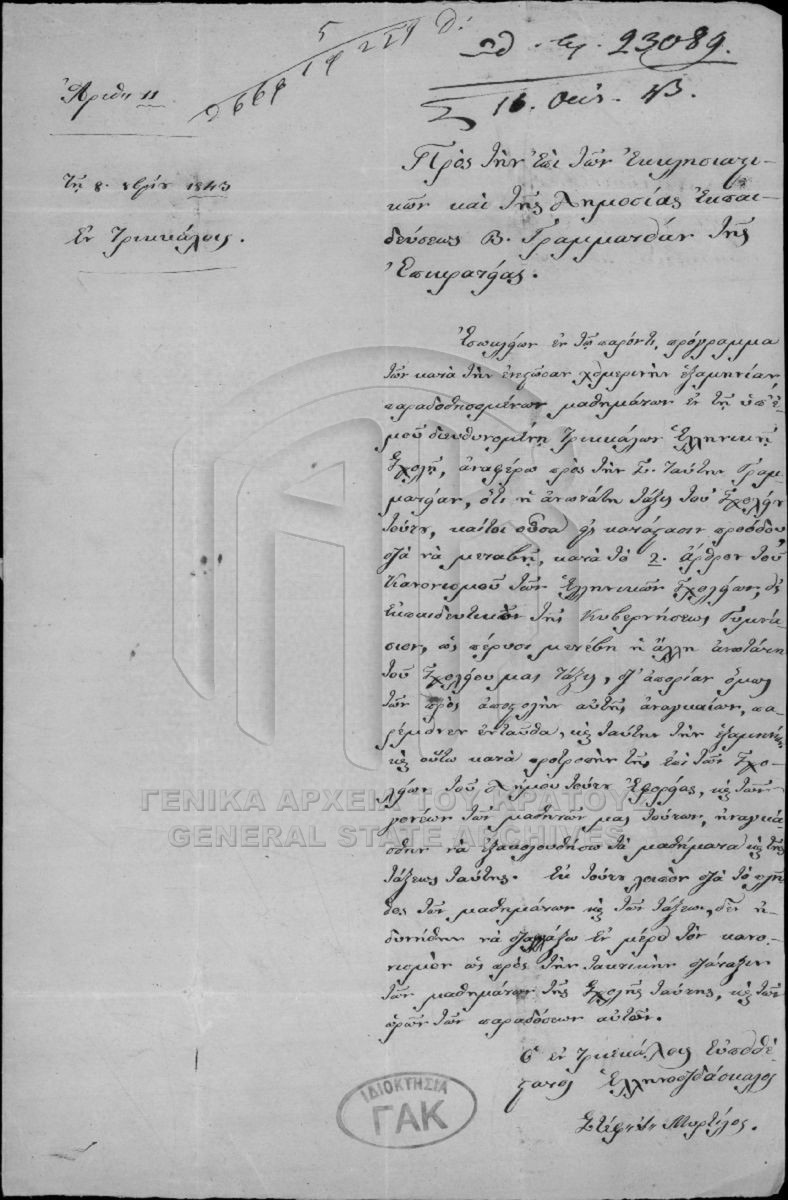 5
9669 19 229 δ:
23089.
16. Οκτ. 43.
Ἀριθ. 11
Τῇ 8. 8βρίου 1843
Ἐν Τρικκάλοις.
Πρὸς τὴν Ἐπὶ τῶν Ἐκκλησιαστι-
κῶν καὶ τῆς Δημοσίας Ἐκπαι-
δεύσεως Β. Γραμματείαν τῆς
Ἐπικρατείας.
Ἐσωκλείων ἐν τῷ παρόντι, πρόγραμμα
τῶν κατὰ τὴν ἐνεστῶσαν χειμερινὴν ἑξαμηνίαν,
παραδοθησομένων μαθημάτων ἐν τῇ ὑπ' ἐ-
μοῦ διευθυνομένῃ Τρικκάλων Ἑλληνικῇ
Σχολῇ, ἀναφέρω πρὸς τὴν Σ. ταύτην Γραμ-
ματείαν, ὅτι ἡ ἀνωτάτη τάξις τοῦ Σχολείου
τούτου, καίτοι οὖσα εἰς κατάστασιν προόδου
διὰ νὰ μεταβῇ, κατὰ τὸ 2. ἄρθρον τοῦ
Κανονισμοῦ τῶν Ἑλληνικῶν Σχολείων, εἰς
Ἐκπαιδευτικὸν τῆς Κυβερνήσεως Γυμνά-
σιον, ὡς πέρυσι μετέβη ἡ ἄλλη ἀνωτάτη
τοῦ Σχολείου μας τάξις, δι' ἀπορίαν ὅμως
τῶν πρὸς ἀποστολὴν αὐτῆς ἀναγκαίων, πα-
ρέμεινεν ἐνταῦθα, καὶ ταύτην τὴν ἑξαμηνίαν
καὶ οὕτω κατὰ προτροπὴν τῆς ἐπὶ τῶν Σχο-
λείων τοῦ Δήμου τούτου Ἐφορείας, καὶ τῶν
γονέων τῶν μαθητῶν μας τούτων, ἠναγκά-
σθην νὰ ἐξακολουθήσω τὰ μαθήματα καὶ τῆς
τάξεως ταύτης. Ἐκ τούτου λοιπὸν διὰ τὸ πλῆ-
θος τῶν μαθημάτων καὶ τῶν τάξεων, δὲν ἠ-
δυνήθην νὰ διαλλάξω ἐν μέρει τὸν κανο-
νισμὸν ὡς πρὸς τὴν τακτικὴν διάταξιν
τῶν μαθημάτων τῆς Σχολῆς ταύτης, καὶ τῶν
ὡρῶν τῶν παραδόσεων αὐτῶν.
Ὁ ἐν Τρικκάλοις Εὐπειθέ-
στατος Ἑλληνοδιδάσκαλος
Μυρτίλος.
ΓΕΝΙΚΑ ΑΡΧΕΙΑ ΤΟΥ ΚΡΑΤΟΥΣ
GENERAL STATE ARCHIVES
ΙΔΙΟΚΤΗΣΙΑ
ΓΑΚ